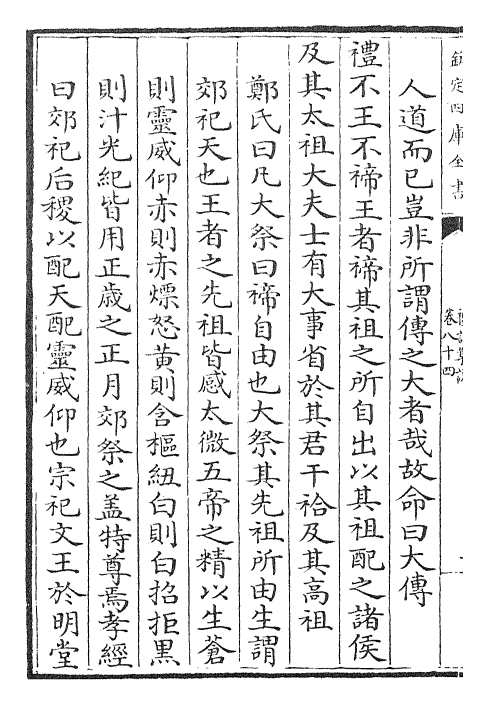 欽定四庫全書
卷八十四
人道而已豈非所謂傳之大者哉故命曰大傳
禮不王不禘王者禘其祖之所自出以其祖配之諸侯
及其太祖大夫士有大事省於其君干祫及其高祖
鄭氏曰凡大祭曰禘自由也大祭其先祖所由生謂
郊祀天也王者之先祖皆感太微五帝之精以生蒼
則靈威仰赤則赤熛怒黄則含樞紐白則白招拒黒
則汁光紀皆用正歳之正月郊祭之盖特尊焉孝經
曰郊祀后稷以配天配靈威仰也宗祀文王於明堂